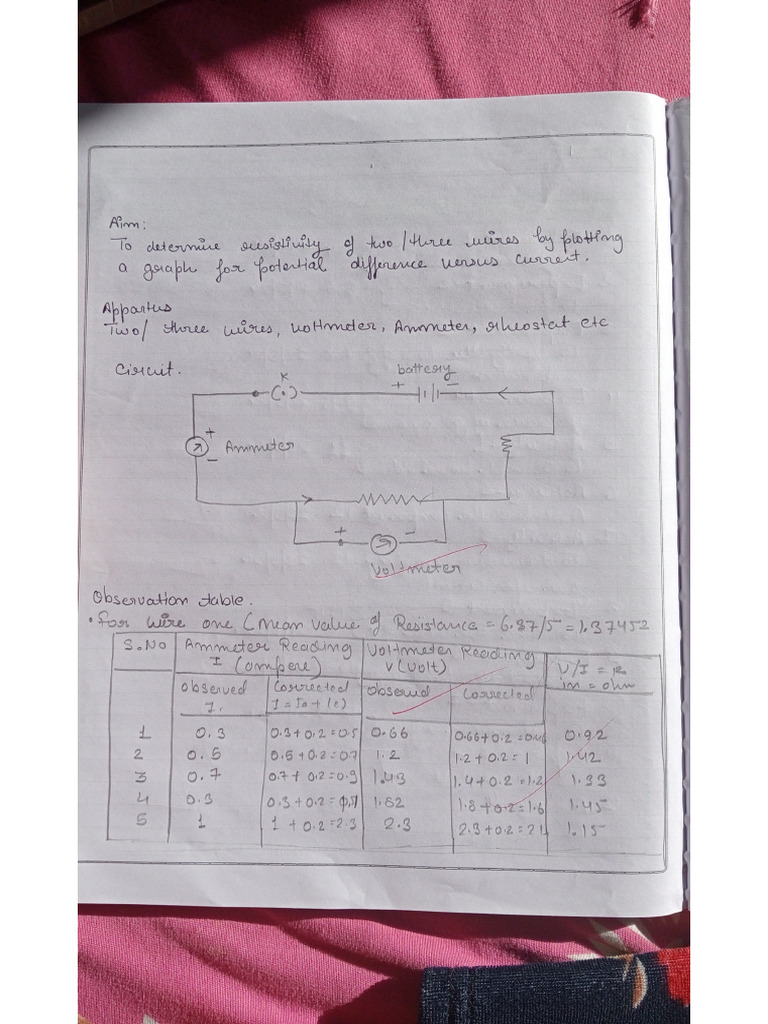 Aim:
To determine resistivity of two/three wires by plotting
a graph for potential difference versus current.
Appartus
Two/ three wires, voltmeter, Ammeter, rheostat etc
Circuit.
K
battery
+ −
+
Ammeter
−
+ −
Voltmeter
Observation table.
• for wire one (Mean value of Resistance = 6.87/5 = 1.374Ω
S.No Ammeter Reading I (ampere) Voltmeter Reading V (volt) V/I = R in = ohm
Observed I. Corrected I = Io + (e) Observed Corrected
1 0.3 0.3+0.2=0.5 0.66 0.66+0.2=0.46 0.92
2 0.5 0.5+0.2=0.7 1.2 1.2+0.2=1 1.42
3 0.7 0.7+0.2=0.9 1.43 1.4+0.2=1.2 1.33
4 0.3 0.3+0.2= 1.82 1.8+0.2=1.6 1.45
5 1 1+0.2=2.3 2.3 2.3+0.2=21 1.15